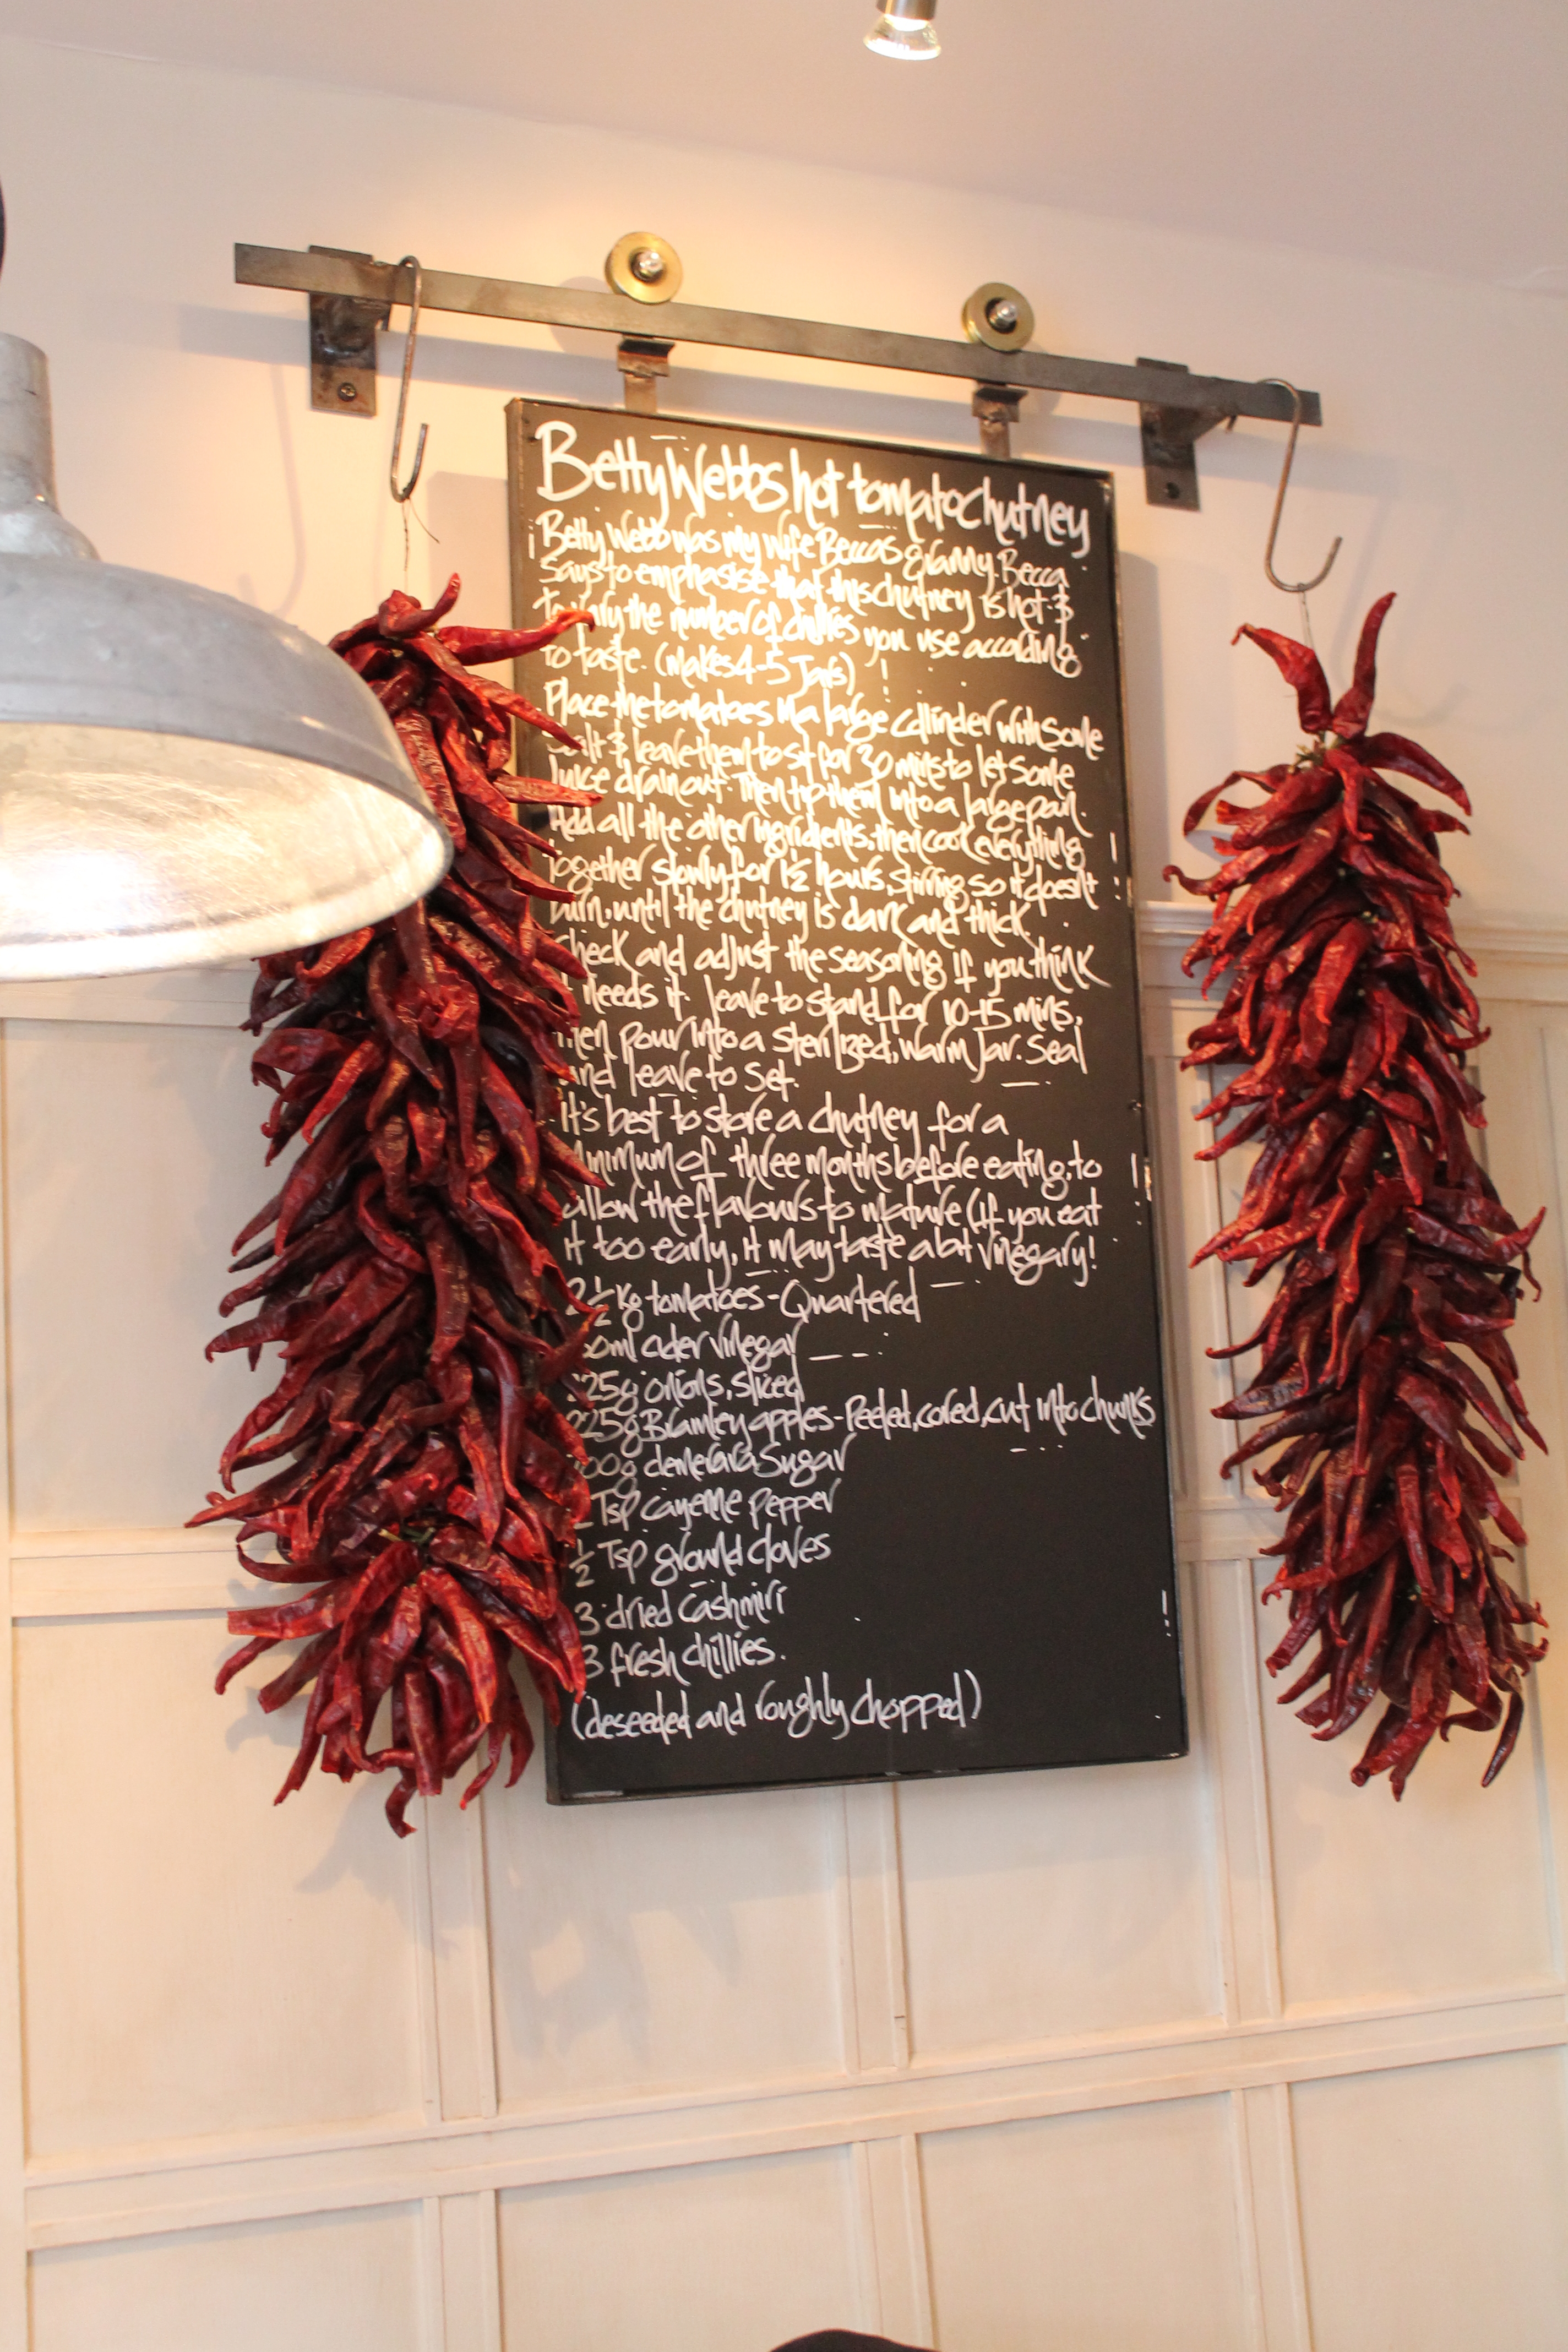 Betty Webbs hot tomato chutney
Betty Webb was my wife Beccas granny. Becca
Says to emphasise that this chutney is hot &
to vary the number of chillies you use according
to taste. (makes 4-5 Jars)
Place the tomatoes in a large collinder with some
Salt & leave them to sit for 30 mins to let some
Juice drain out. Then tip them into a large pan.
Add all the other ingridients, then cook everything
together slowly for 1½ hours, stirring, so it doesn't
burn, until the chutney is dark and thick.
Check and adjust the seasoning if you think
it needs it. leave to stand for 10-15 mins,
then pour into a sterilized, warm Jar. Seal
and leave to Set.
It's best to store a chutney for a
minimum of three months before eating, to
allow the flavours to mature (if you eat
it too early, it may taste a bit vinegary!
2½ kg tomatoes - Quartered
cider vinegar
225g onions, sliced
225g Bramley apples - Peeled, cored, cut into chunks
demerara Sugar
Tsp cayenne pepper
½ Tsp ground cloves
3 dried Cashmiri
3 fresh chillies.
(deseeded and roughly chopped)